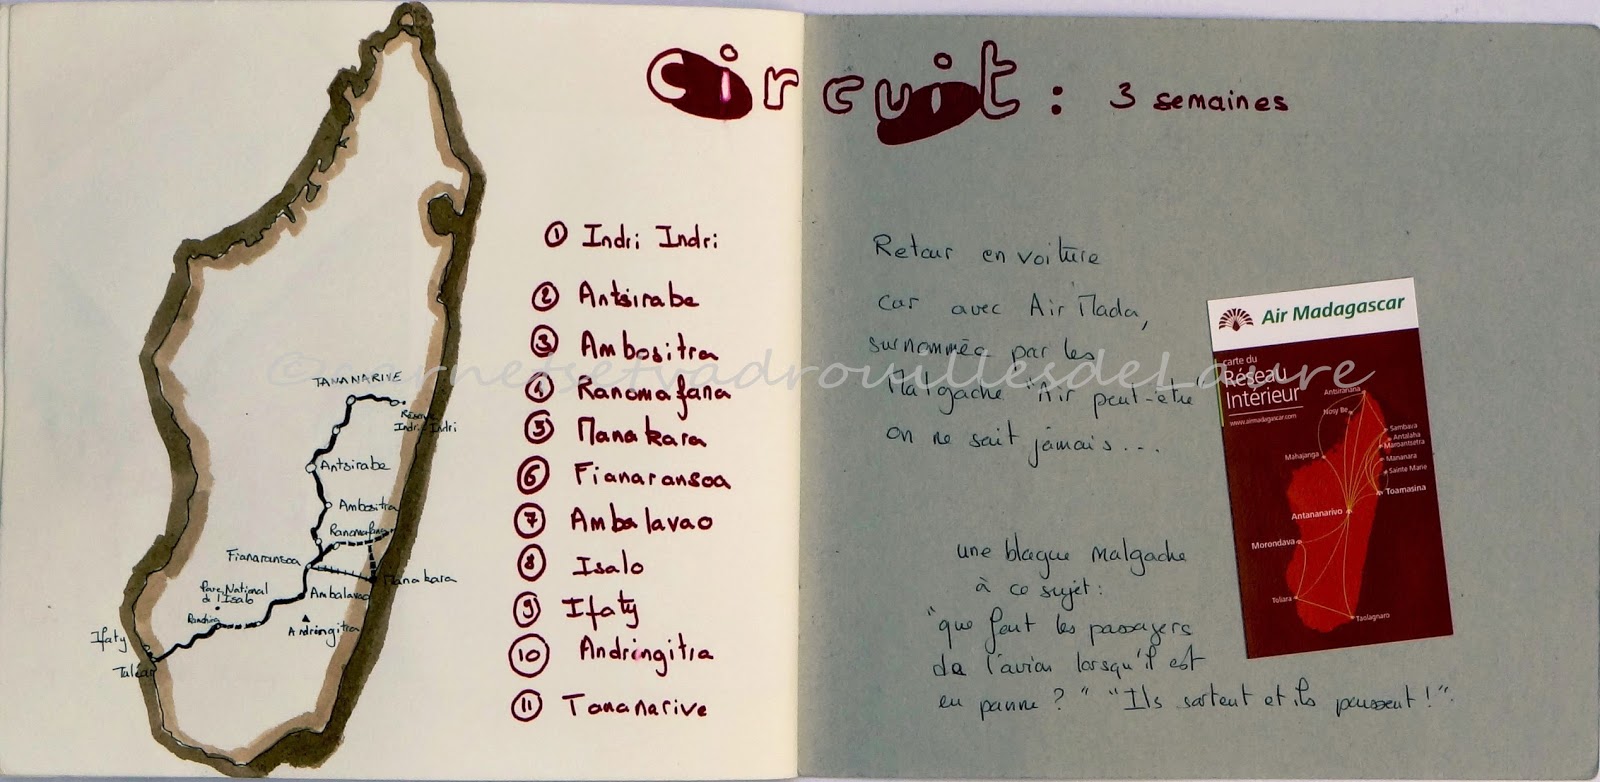 Circuit : 3 semaines
TANANARIVE
Réserve
Indri Indri
Antsirabe
Ambositra
Ranomafana
Fianaransoa
Manakara
Parc National
de l'Isalo
Ranohira
Ambalavao
Andringitra
Ifaty
Tuléar
① Indri Indri
② Antsirabe
③ Ambositra
④ Ranomafana
⑤ Manakara
⑥ Fianaransoa
⑦ Ambalavao
⑧ Isalo
⑨ Ifaty
⑩ Andringitra
⑪ Tananarive
Retour en voiture
car avec Air Mada,
surnommée par les
Malgache "Air peut-être"
on ne sait jamais...
une blague Malgache
à ce sujet:
"que font les passagers
de l'avion lorsqu'il est
en panne ? " "Ils sortent et ils poussent !".
Air Madagascar
carte du
Réseau
Intérieur
www.airmadagascar.com
Antsiranana
Nosy Be
Sambava
Antalaha
Maroantsetra
Mahajanga
Mananara
Sainte Marie
Toamasina
Antananarivo
Morondava
Toliara
Taolagnaro
©carnetsetvadrouillesdeLaure